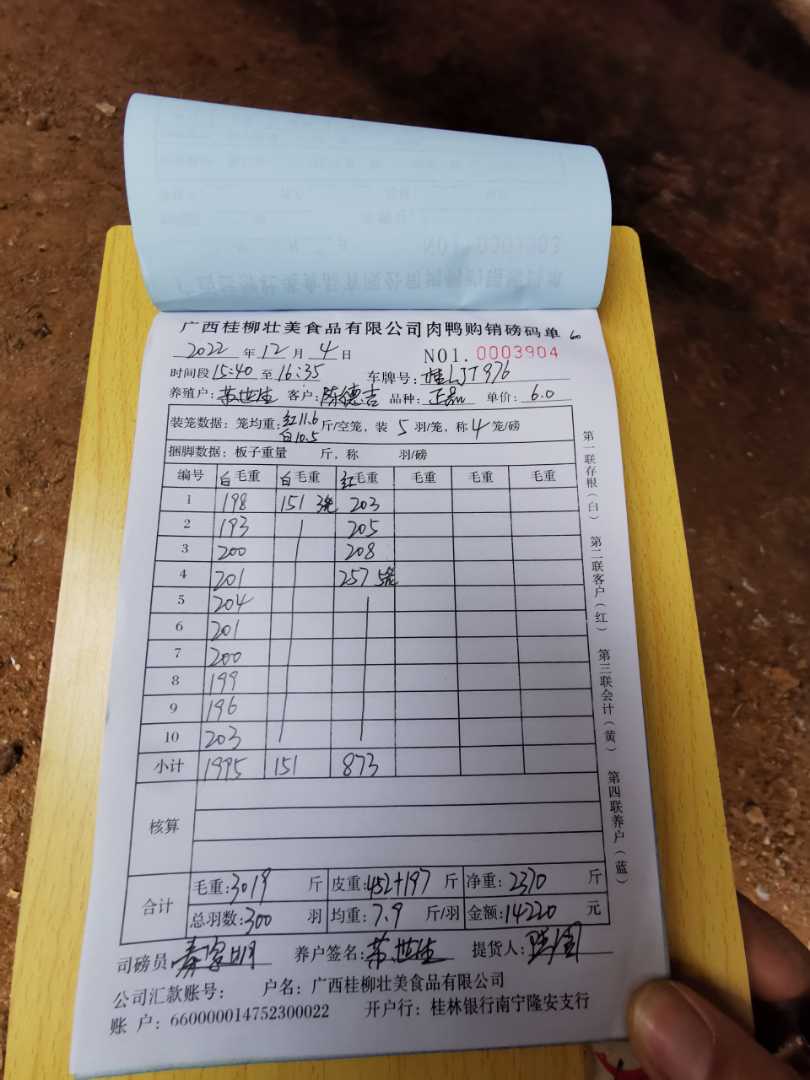 广西桂柳壮美食品有限公司肉鸭购销磅码单 60
2022 年 12 月 4 日 NO1. 0003904
时间段 15:40 至 16:35 车牌号: 桂LJT976
养殖户: 苏世生 客户: 陈德吉 品种: 正品 单价: 6.0
装笼数据: 笼均重: 红11.6 白10.5 斤/空笼, 装 5 羽/笼, 称 4 笼/磅
捆脚数据: 板子重量 斤, 称 羽/磅
编号 白毛重 白毛重 红毛重 毛重 毛重 毛重
1 198 151 3笼 203
2 193 205
3 200 208
4 201 257 5笼
5 204
6 201
7 200
8 199
9 196
10 203
小计 1995 151 873
核算
合计 毛重: 3019 斤 皮重: 452+197 斤 净重: 2370 斤
总羽数: 300 羽 均重: 7.9 斤/羽 金额: 14220 元
司磅员 养户签名: 苏世生 提货人:
公司汇款账号: 户名: 广西桂柳壮美食品有限公司
账 户: 660000014752300022 开户行: 桂林银行南宁隆安支行
第一联存根(白) 第二联客户(红) 第三联会计(黄) 第四联养户(蓝)